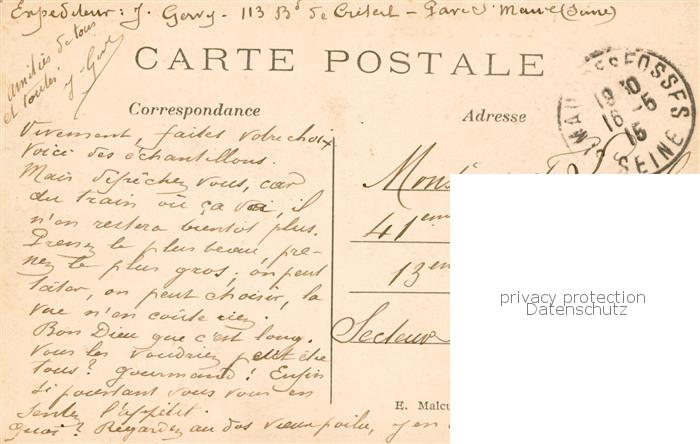 Expediteur: J. Gervy - 113 Bd de Créteil - Parc St Maur (Seine)
amitiés de tous
et toutes.
J. Gervy
CARTE POSTALE
Correspondance
Adresse
FOSSES
SEINE
Vivement, faites votre choix
Voici des échantillons.
Mais dépêchez vous, car
du train où ça va, il
n'en restera bientôt plus.
Prenez le plus beau, pre-
nez le plus gros; on peut
tâter, on peut choisir, la
vue n'en coûte rien.
Bon Dieu que c'est long.
Vous les voudriez peut être
tous? gourmand! Enfin
si pourtant vous vous en
sentez l'appétit.
Quoi? Regardez au dos vieux poilu, y en
41eme
13em
Secteur
E. Malcu
privacy protection
Datenschutz